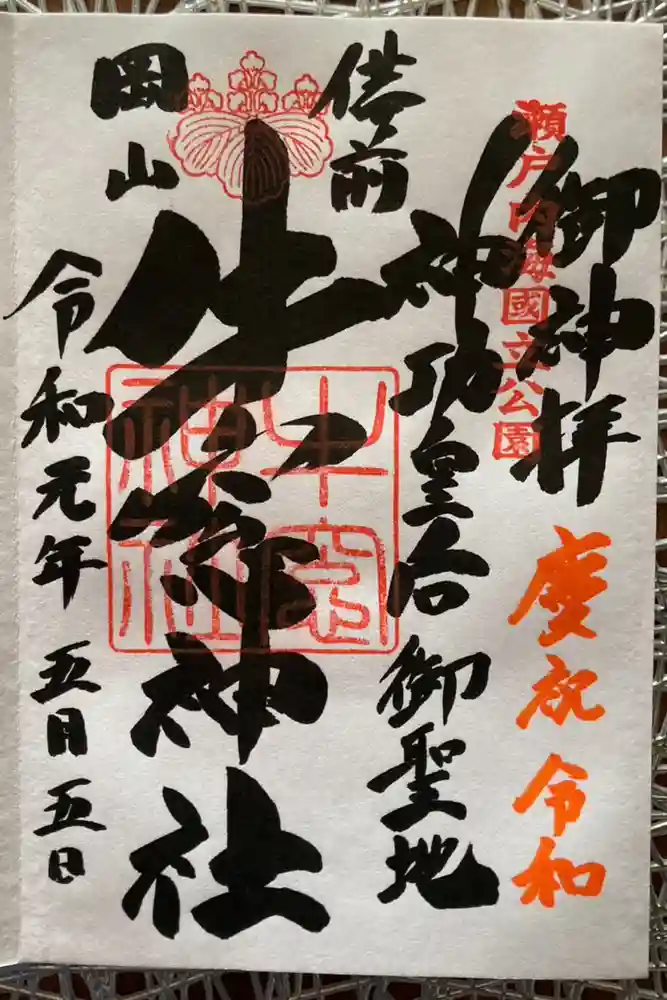 御神拝
瀬戸内海國立公園
慶祝 令和
神功皇后御聖地
備前
岡山
牛窓神社
牛窓神社
令和元年五月五日